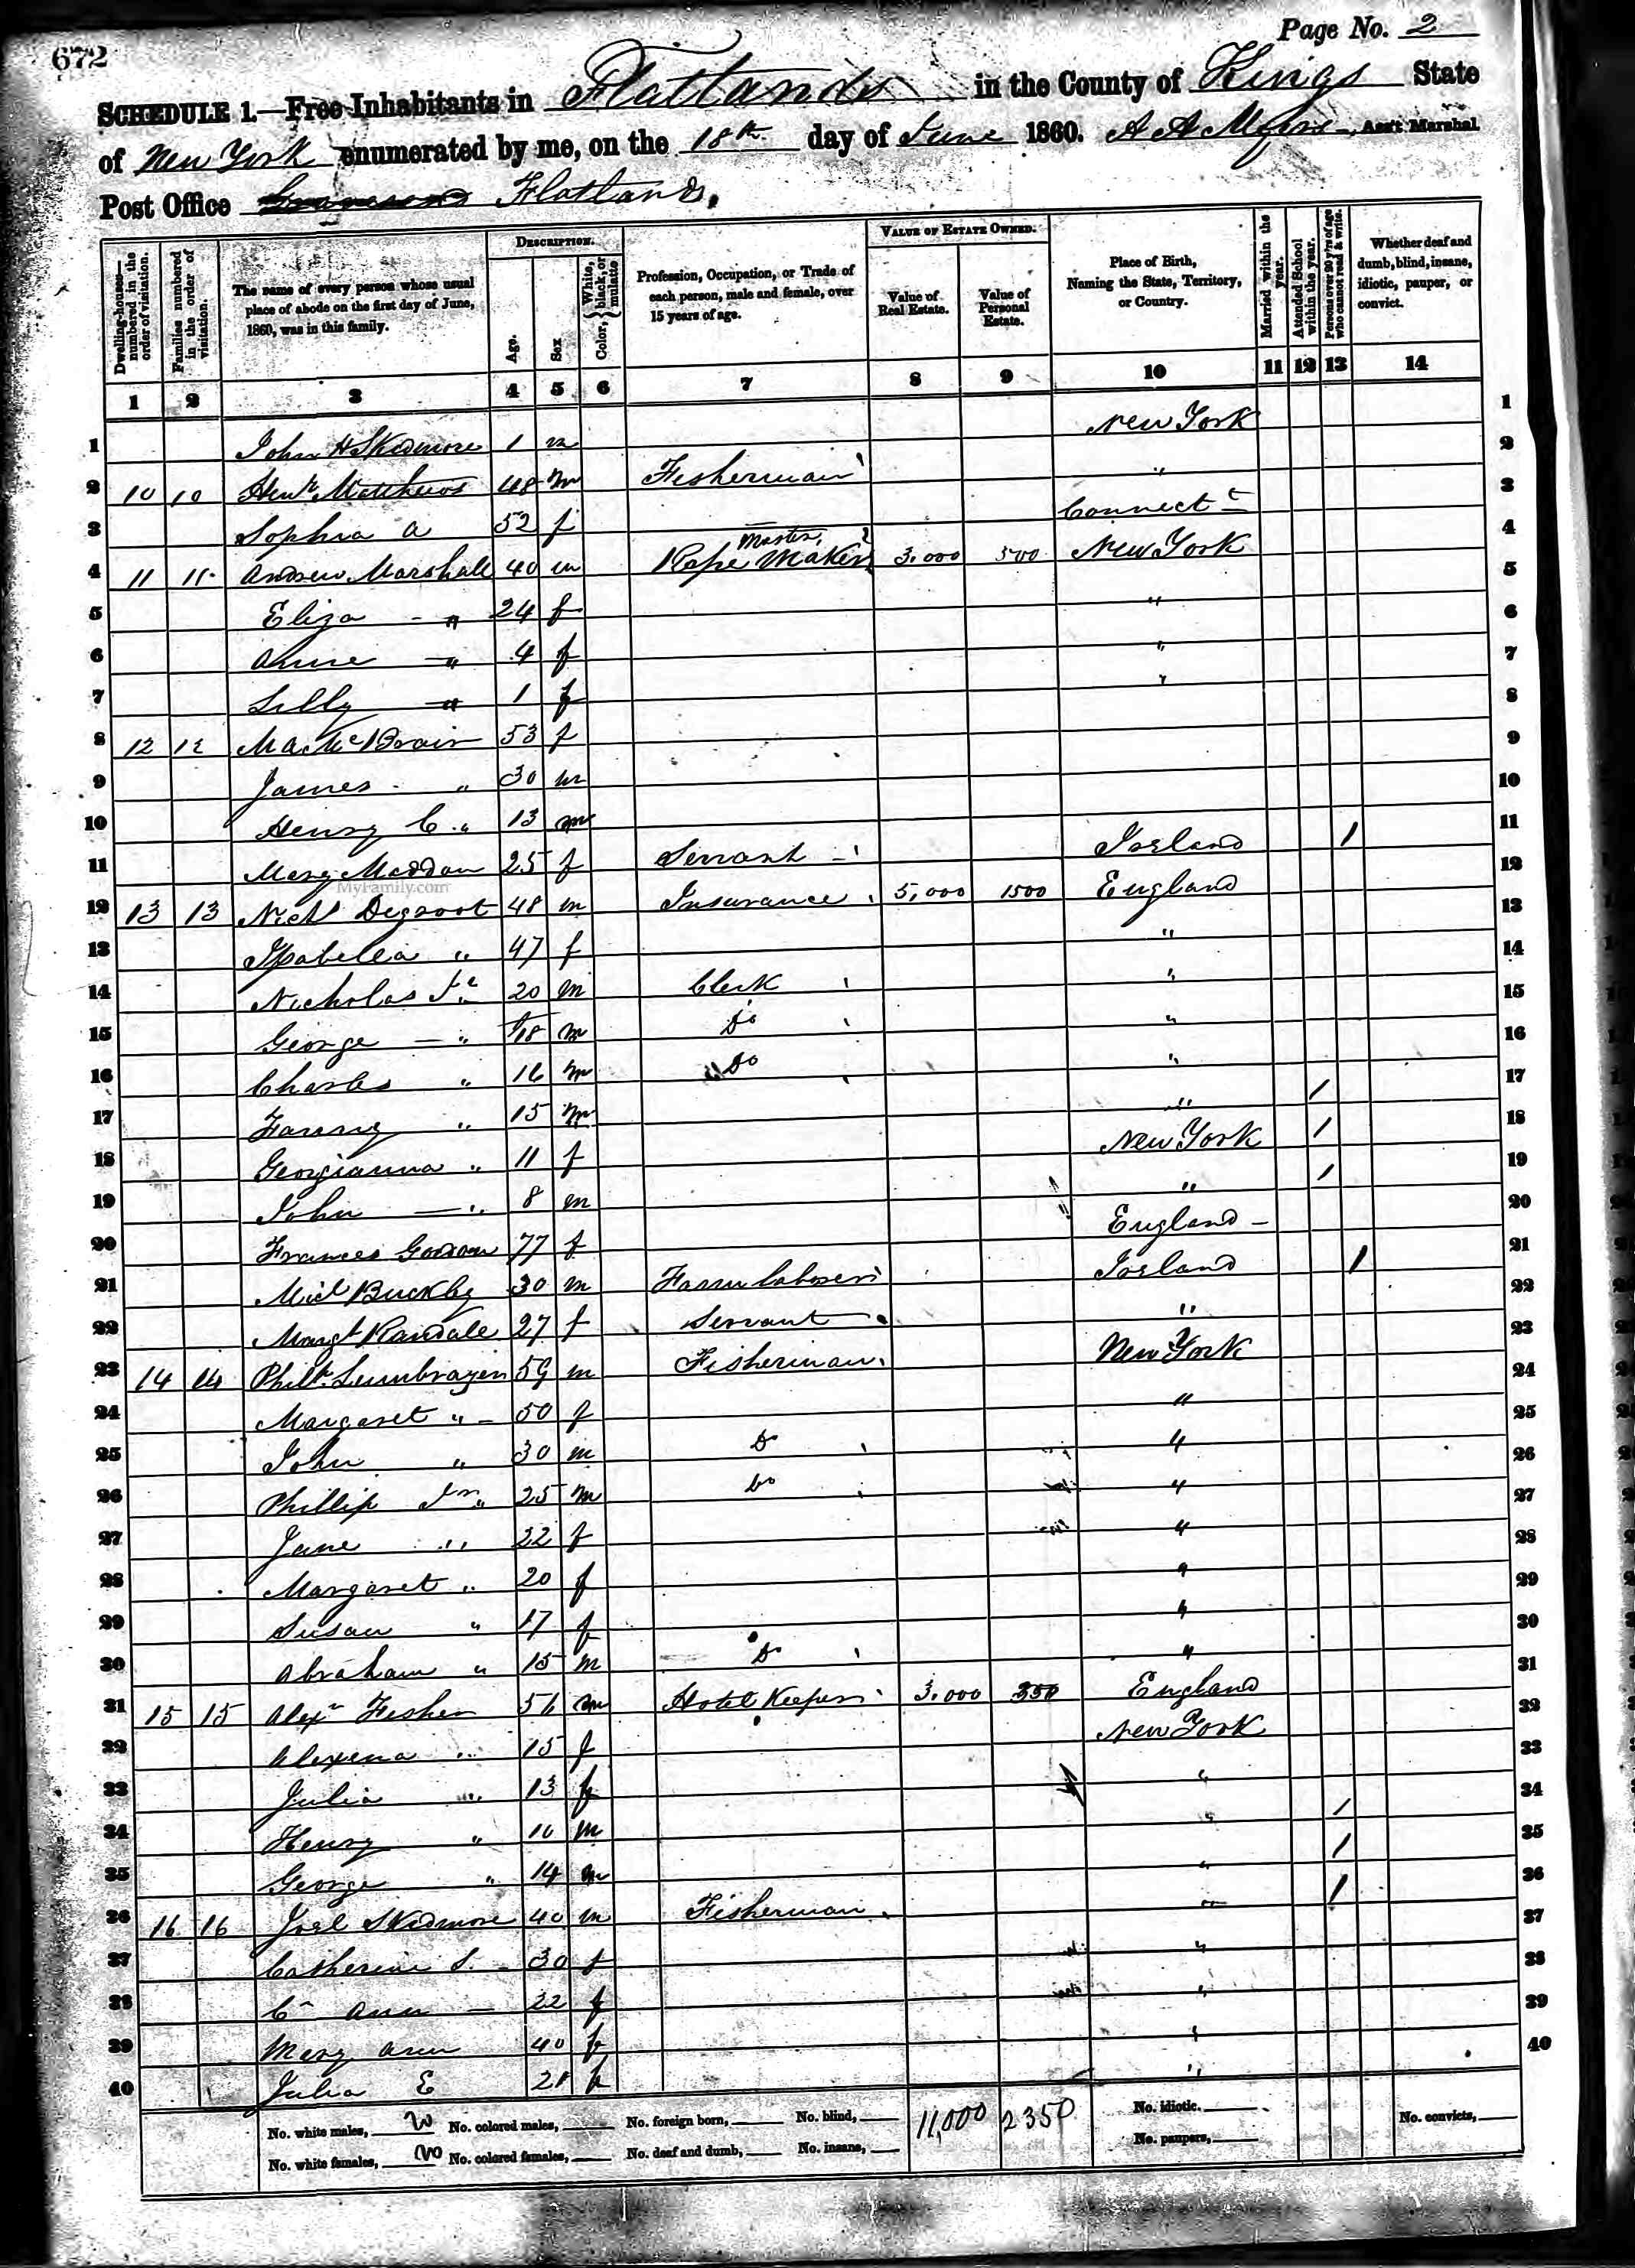 672
Page No. 2
SCHEDULE 1.—Free Inhabitants in Flatlands in the County of Kings State
of New York enumerated by me, on the 18th day of June 1860. A A Myers Ass't Marshal
Post Office Flatlands.
Dwelling-houses—numbered in the order of visitation. Families numbered in the order of visitation. The name of every person whose usual place of abode on the first day of June, 1860, was in this family. DESCRIPTION. Age. Sex Color, White, black, or mulatto Profession, Occupation, or Trade of each person, male and female, over 15 years of age. VALUE OF ESTATE OWNED. Value of Real Estate. Value of Personal Estate. Place of Birth, Naming the State, Territory, or Country. Married within the year. Attended School within the year. Persons over 20 y'rs of age who cannot read & write. Whether deaf and dumb, blind, insane, idiotic, pauper, or convict.
1 2 3 4 5 6 7 8 9 10 11 12 13 14
1 John H Skidmore 1 m New York 1
2 10 10 Henr Matthews 48 m Fisherman " 2
3 Sophia A 52 f — Connect t 3
4 11 11 Andrew Marshall 40 m Master Rope Maker 3,000 500 New York 4
5 Eliza - " 24 f " 5
6 Anne — " 4 f " 6
7 Lilly — " 1 f " 7
8 12 12 Ma. McBrair 53 f 8
9 James " 30 m 9
10 Henry C. " 13 m 10
11 Mary Maddon 25 f Servant - Ireland / 11
MyFamily.com
12 13 13 Nichs Degroot 48 m Insurance 5,000 1500 England 12
13 Isabella " 47 f " 13
14 Nicholas Jr 20 m Clerk " 14
15 George — " 18 m Do " 15
16 Charles " 16 m Do " 16
17 Fanny " 15 m " / 17
18 Georgianna " 11 f New York / 18
19 John — " 8 m " / 19
20 Frances 77 f England - 20
21 Micl Buckley 30 m Farm Laborer Ireland / 21
22 Margt Randale 27 f Servant " 22
23 14 14 59 m Fisherman New York 23
24 Margaret " - 50 f " 24
25 John " 30 m Do " 25
26 Phillip Jr " 25 m Do " 26
27 Jane " 22 f " 27
28 Margaret " 20 f " 28
29 Susan " 17 f " 29
30 Abraham " 15 m Do " 30
31 15 15 Alexr Fisher 56 m Hotel Keeper 3,000 350 England 31
32 Alexena " 15 f New York 32
33 Julia " 13 f " 33
34 Henry " 10 m " / 34
35 George " 14 m " / 35
36 16 16 Joel Skidmore 40 m Fisherman " / 36
37 Catherine S. - 30 f " 37
38 C Ann — 22 f " 38
39 Mary Ann 40 f " 39
40 Julia E 28 f " 40
No. white males, No. colored males, No. foreign born, No. blind, 11,000 2350 No. idiotic. No. convicts,
No. white females, No. colored females, No. deaf and dumb, No. insane, No. paupers,